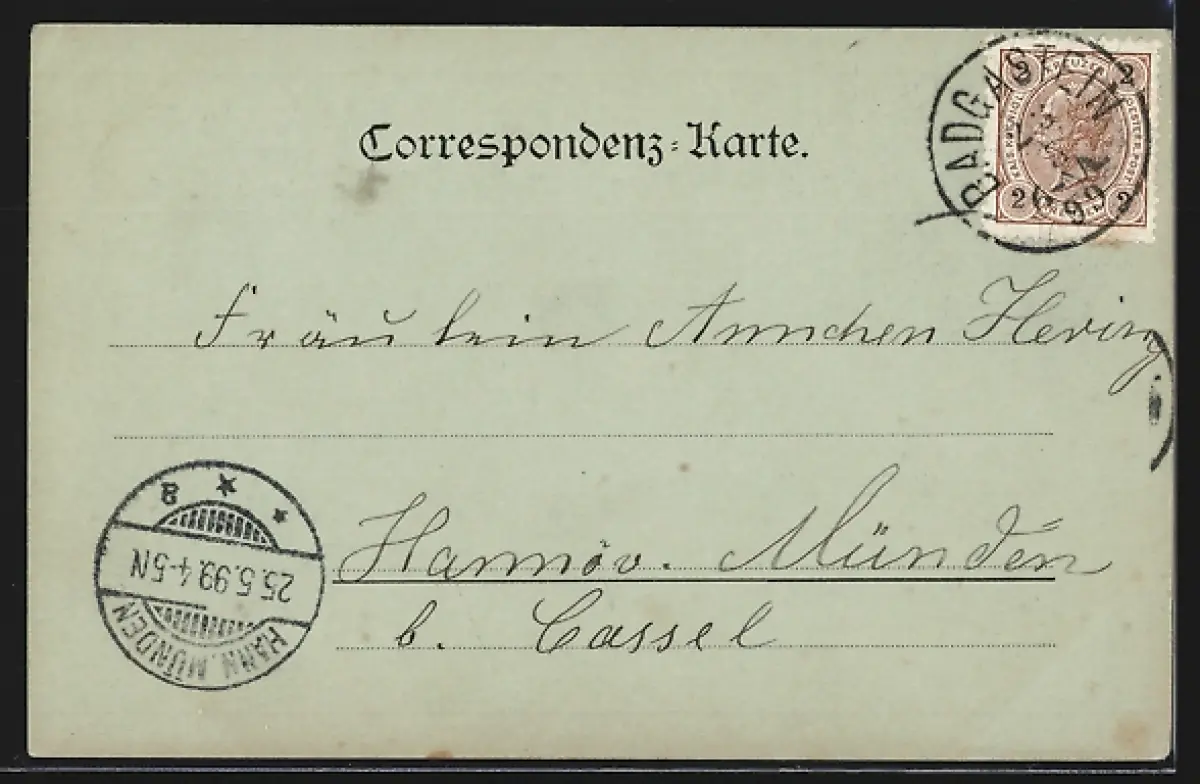 Correspondenz-Karte.
BADGASTEIN
99
2 2
2 2
Fräulein Annchen Hering
Hannöv. Münden
b. Cassel
HANN. MÜNDEN
25.5.99.4-5N